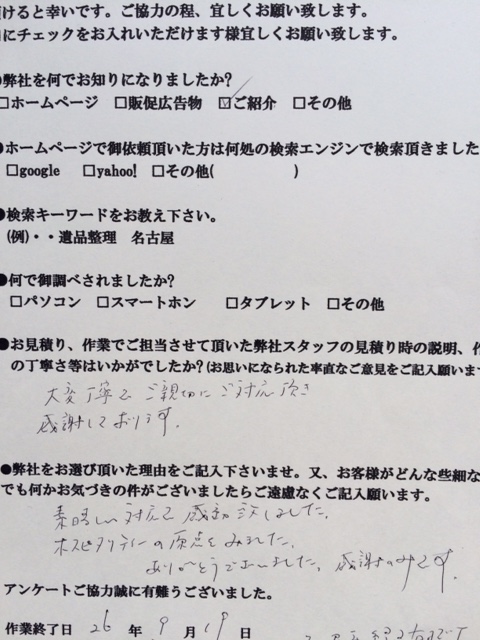 頂けると幸いです。ご協力の程、宜しくお願い致します。
にチェックをお入れいただけます様宜しくお願い致します。
●弊社を何でお知りになりましたか?
□ホームページ □販促広告物 ☑ご紹介 □その他
●ホームページで御依頼頂いた方は何処の検索エンジンで検索頂きました
□google □yahoo! □その他( )
●検索キーワードをお教え下さい。
(例)・・遺品整理 名古屋
●何で御調べされましたか?
□パソコン □スマートホン □タブレット □その他
●お見積り、作業でご担当させて頂いた弊社スタッフの見積り時の説明、作
の丁寧さ等はいかがでしたか?(お思いになられた率直なご意見をご記入願いま
大変丁寧でご親切にご対応頂き
感謝しております。
●弊社をお選び頂いた理由をご記入下さいませ。又、お客様がどんな些細な
でも何かお気づきの件がございましたらご遠慮なくご記入願います。
素晴しい対応で感動致しました。
ホスピタリティーの原点をみました。
ありがとうございました。感謝のみです。
アンケートご協力誠に有難うございました。
作業終了日 26 年 9 月 19 日